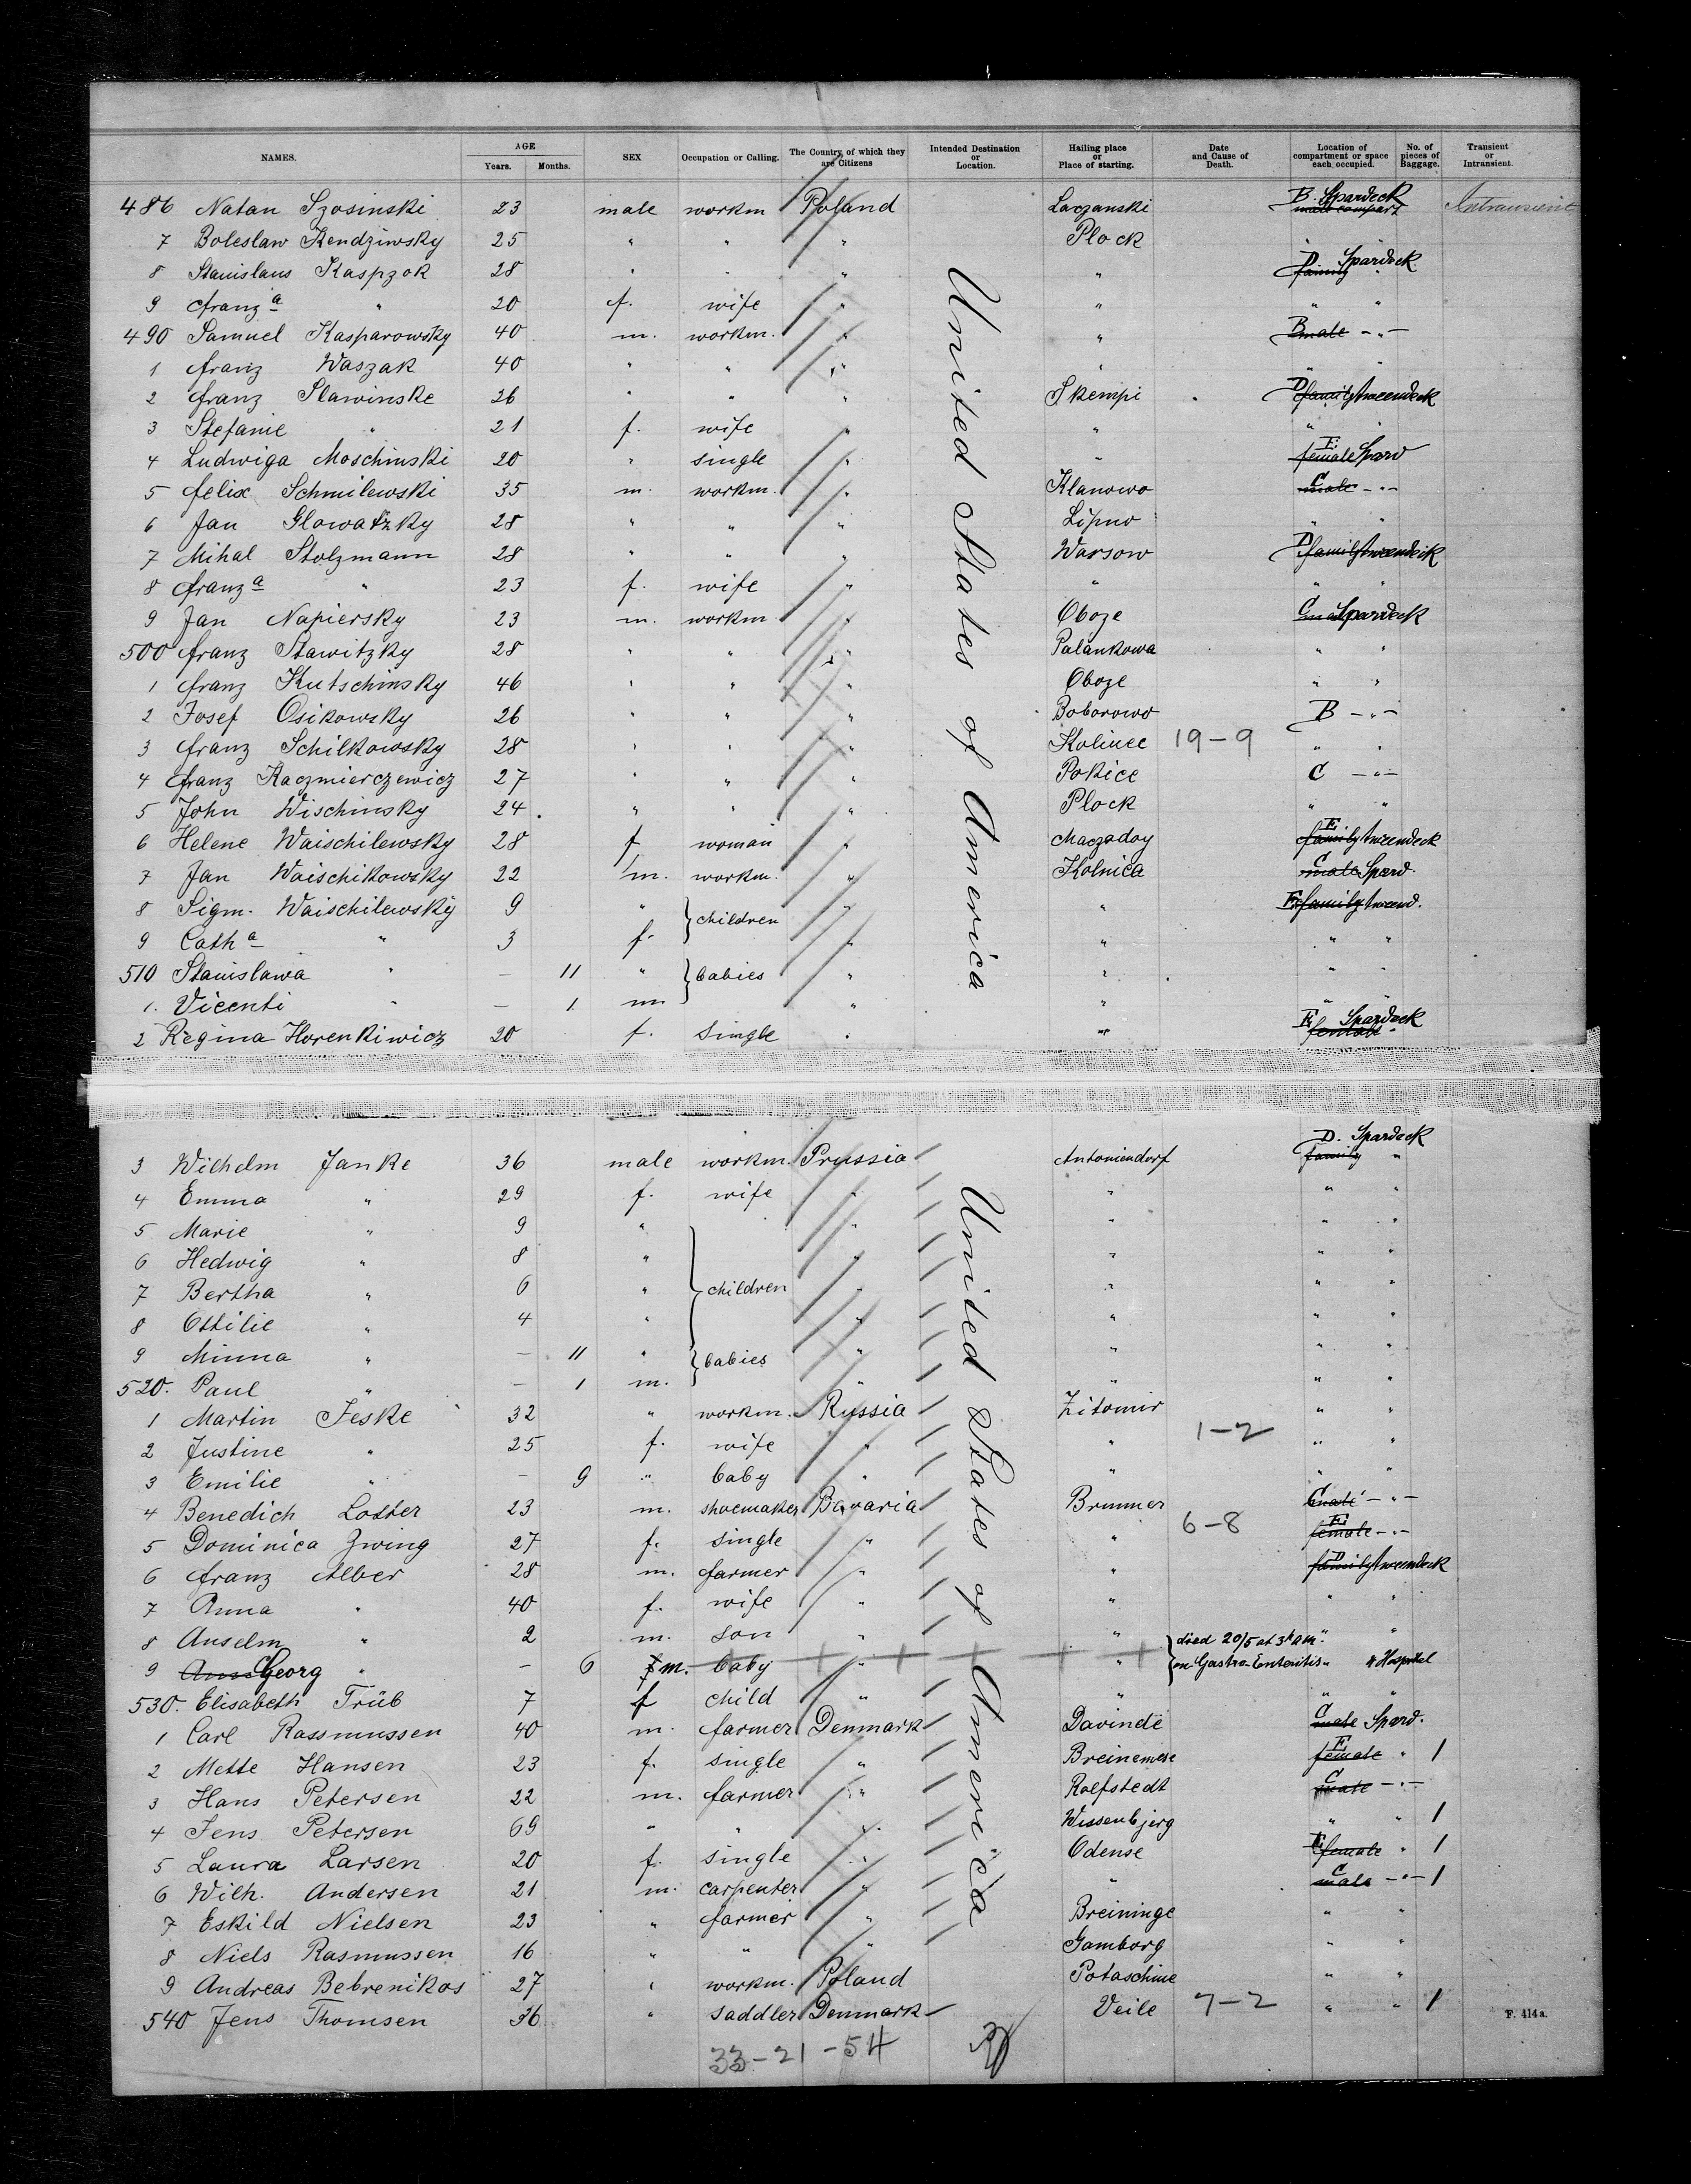 NAMES. AGE Years. Months. SEX Occupation or Calling. The Country of which they are Citizens Intended Destination or Location. Hailing place or Place of starting. Date and Cause of Death. Location of compartment or space each occupied. No. of pieces of Baggage. Transient or Intransient.
486 Natan Szosinski 23 male workm Poland Laczanski B. Spardeck male compart Intransient
7 Boleslaw Kendziwsky 25 " " " Plock " "
8 Stanislaus Kaspzok 28 " " " " D Spardeck family "
9 Franz a " 20 f. wife " " " "
490 Samuel Kasparowsky 40 m. workm. " " B male - " -
1 Franz Waszak 40 " " " " " "
2 Franz Slawinske 26 " " " Skempi D family tweendeck
3 Stefanie " 21 f. wife " " " "
4 Ludwiga Moschinski 20 " single " " E female Spard
5 Felix Schmilewski 35 m. workm. " Klanowo C male - " -
6 Jan Glowatzky 28 " " " Lipno " "
7 Mihal Stolzmann 28 " " " Warsow D family tweendeck
8 Franz a " 23 f. wife " " " "
9 Jan Napiersky 23 m. workm " Oboze C male Spardeck
500 Franz Stawitzky 28 " " " Palankowa " "
1 Franz Kutschinsky 46 " " " Oboze " "
2 Josef Osikowsky 26 " " " Boborowo B - " -
3 Franz Schilkowsky 28 " " " Kolince 19-9 " "
4 Franz Kaczmierczewicz 27 " " " Pokice C - " -
5 John Wischinsky 24 " " " Plock " "
6 Helene Waischilewsky 28 f woman " Maczadoy E family tweendeck
7 Jan Waischikowsky 22 m. workm. " Kolnica C male Spard.
8 Sigm. Waischilewsky 9 " children " " E family tweend.
9 Cath a " 3 f. " " " "
510 Stanislawa " - 11 " babies " " " "
1. Vicenti " - 1 m " " " "
2 Regina Horenkiwicz 20 f. single " " E Spardeck female "
United States of America
3 Wilhelm Janke 36 male workm. Prussia Antoniendorf D. Spardeck family "
4 Emma " 29 f. wife " " " "
5 Marie " 9 " " " " "
6 Hedwig " 8 " " " " "
7 Bertha " 6 " children " " " "
8 Ottilie " 4 " " " " "
9 Minna " - 11 " babies " " " "
520. Paul " - 1 m. " " " "
1 Martin Jeske 32 " workm. Russia Zitomir " "
2 Justine " 25 f. wife " " 1-2 " "
3 Emilie " - 9 " baby " " " "
4 Benedich Lotter 23 m. shoemaker Bavaria Brunner C male - " -
5 Dominica Zwing 27 f. single " " 6-8 E female - " -
6 Franz Alber 28 m. farmer " " D family tweendeck
7 Anna " 40 f. wife " " " "
8 Anselm " 2 m. son " " died 20/5 at 3h AM. " "
9 Georg " - 6 m. baby " " on Gastro-Enteritis " " Hospital
530. Elisabeth Trüb 7 f child " " " "
1 Carl Rassmussen 40 m. farmer Denmark Davinde C male Spard.
2 Mette Hansen 23 f. single " Breinemose E female " 1
3 Hans Petersen 22 m. farmer " Rolfstedt C male - " -
4 Jens Petersen 69 " " " Wissenbjerg " " 1
5 Laura Larsen 20 f. single " Odense E female " 1
6 Wilh. Andersen 21 m. carpenter " " C male - " - 1
7 Eskild Nielsen 23 " farmer " Breininge " "
8 Niels Rasmussen 16 " " " Gamborg " "
9 Andreas Bebrenikos 27 " workm. Poland Potaschine " "
540 Jens Thomsen 36 " saddler Denmark Veile 7-2 " " 1
United States of America
F. 414 a.
33-21-54